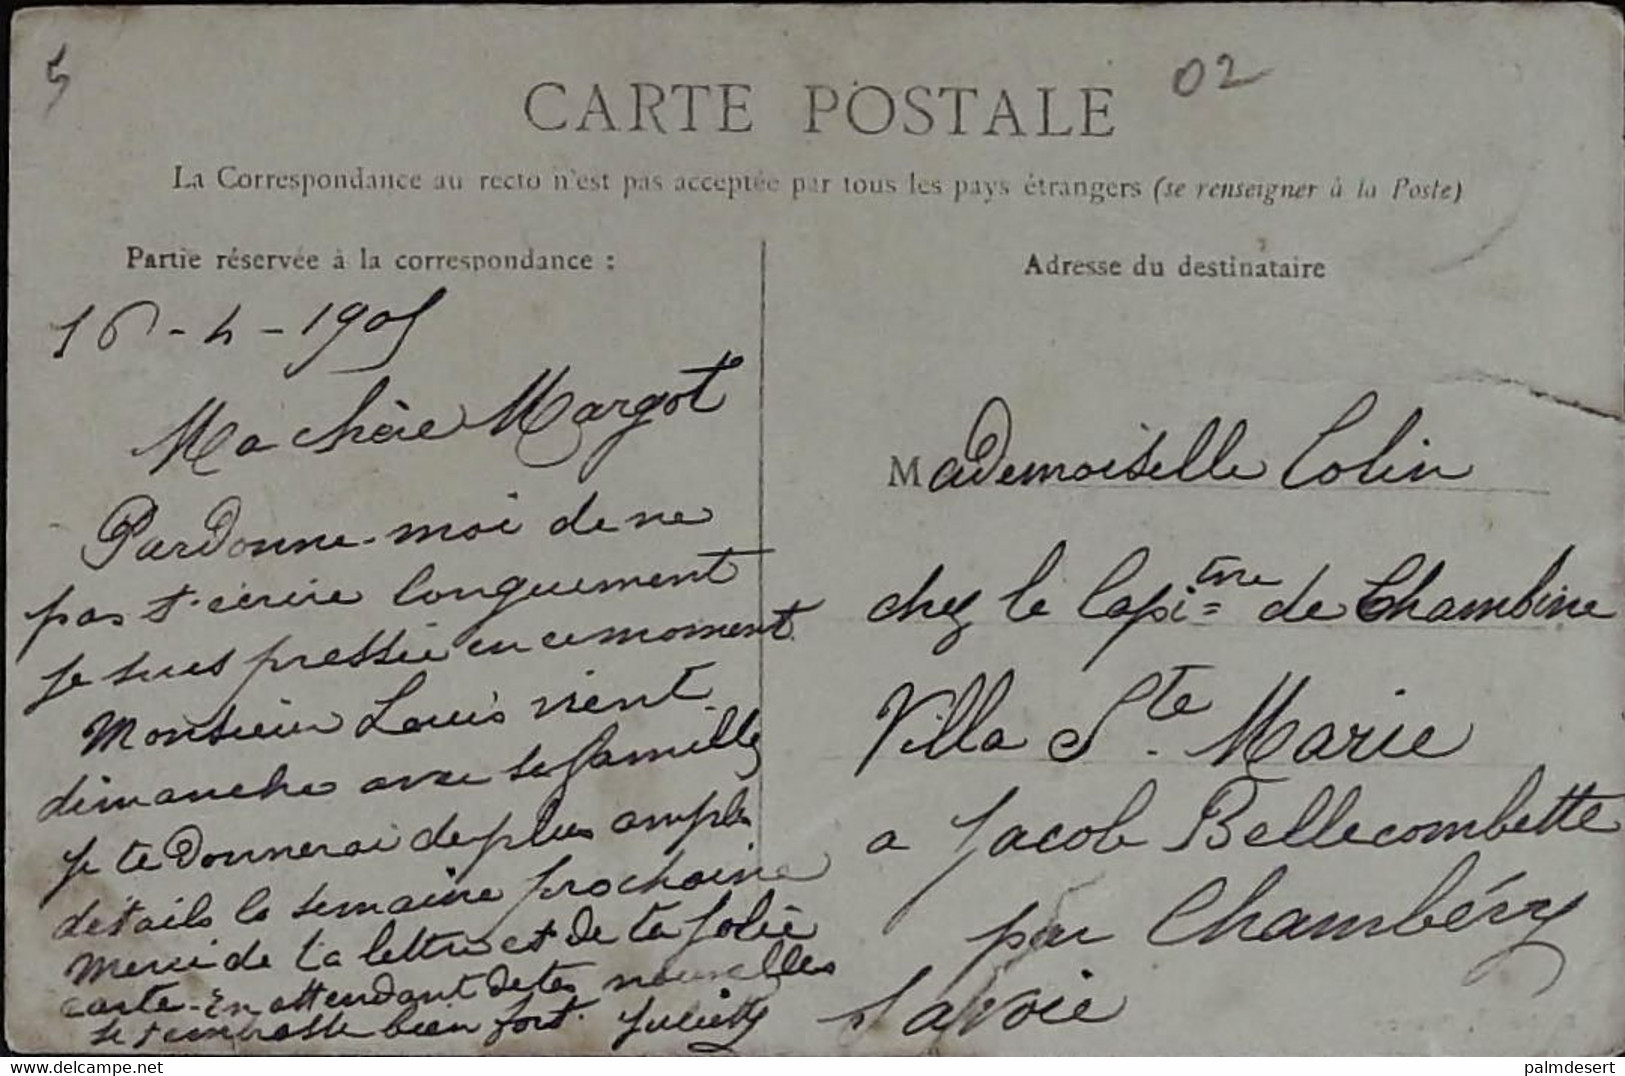 5
02
CARTE POSTALE
La Correspondance au recto n'est pas acceptée par tous les pays étrangers (se renseigner à la Poste)
Partie réservée à la correspondance :
16-4-1905
Ma chère Margot
Pardonne-moi de ne
pas t'écrire longuement
je suis pressée en ce moment
Monsieur Louis vient
dimanche avec sa famille
je te donnerai de plus amples
détails la semaine prochaine
Merci de ta lettre et de ta jolie
carte - En attendant de tes nouvelles
je t'embrasse bien fort. Juliette
Adresse du destinataire
Mademoiselle Colin
chez le Capi=tne de Chambine
Villa Ste. Marie
a Jacob Bellecombette
par Chambéry
Savoie
delcampe.net
palmdesert